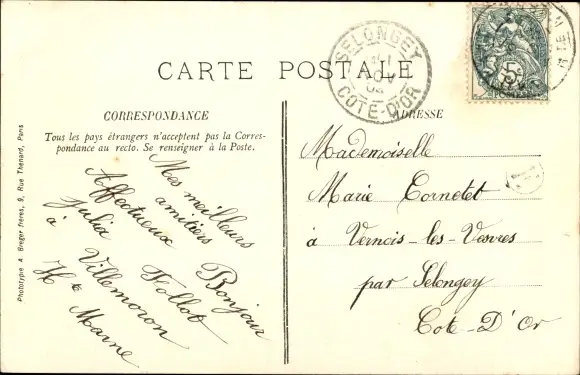 CARTE POSTALE
SELONGEY
NOV
COTE-D'OR
5c
POSTES
CORRESPONDANCE
Tous les pays étrangers n'acceptent pas la Corres-
pondance au recto. Se renseigner à la Poste.
Mes meilleurs
amitiers
Affectueux Bonjour
Julia Follot
à Villemoron
Hte Marne
ADRESSE
Mademoiselle
Marie Cornetet
à Vernois-les-Vesvres
par Selongey
Cote-D'Or
Phototype A. Breger frères, 9, Rue Thénard, Paris